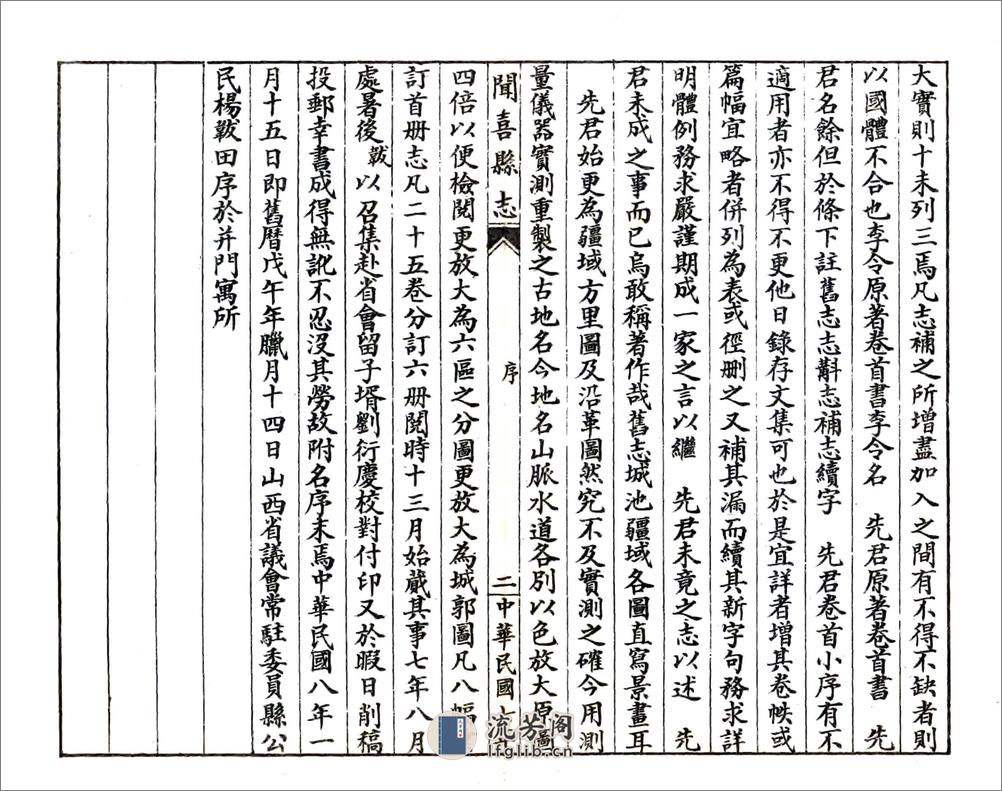 大實則十未列三焉凡志補之所增盡加入之間有不得不缺者則
以國體不合也李令原著卷首書李令名　先君原著卷首書　先
君名餘但於條下註舊志志斠志補志續字　先君卷首小序有不
適用者亦不得不更他日錄存文集可也於是宜詳者增其卷帙或
篇幅宜略者併列為表或徑删之又補其漏而續其新字句務求詳
明體例務求嚴謹期成一家之言以繼　先君未竟之志以述　先
君未成之事而已烏敢稱著作哉舊志城池疆域各圖直寫景畫耳
　先君始更為疆域方里圖及沿革圖然究不及實測之確今用測
量儀器實測重製之古地名今地名山脈水道各別以色放大原圖
聞喜縣志　序　二　中華民國
四倍以便檢閱更放大為六區之分圖更放大為城郭圖凡八幅
訂首册志凡二十五卷分訂六册閱時十三月始蕆其事七年八月
處暑後韍以召集赴省會留子壻劉衍慶校對付印又於暇日削稿
投郵幸書成得無訛不忍没其勞故附名序末焉中華民國八年一
月十五日即舊曆戊午年臘月十四日山西省議會常駐委員縣公
民楊韍田序於并門寓所
流芳阁
lfglib.cn